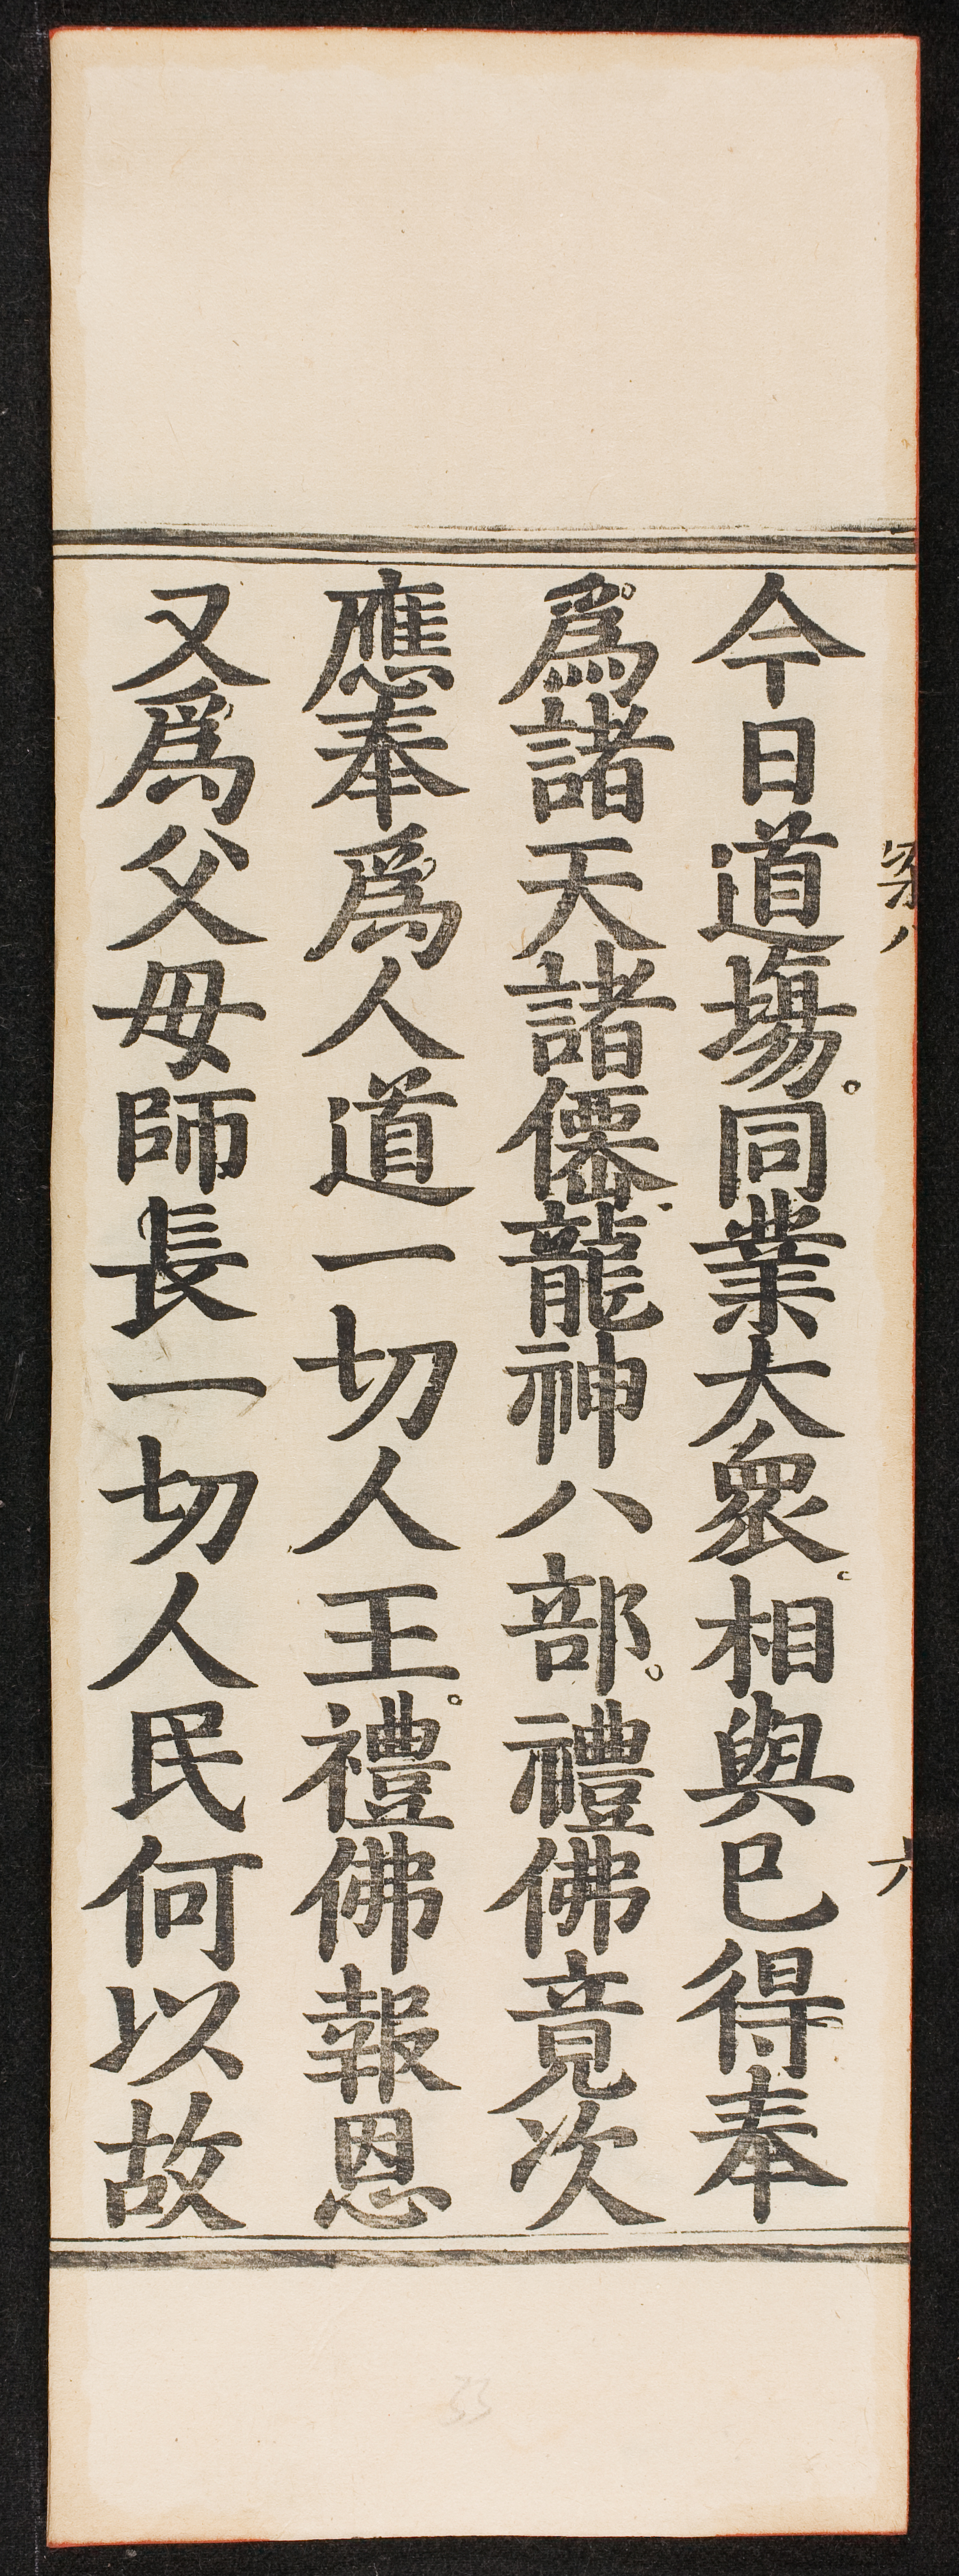 六
今日道場。同業大衆。相與已得奉
爲諸天諸僊龍神八部。禮佛竟次
應奉爲人道一切人王。禮佛報恩
又爲父母師長一切人民何以故
33